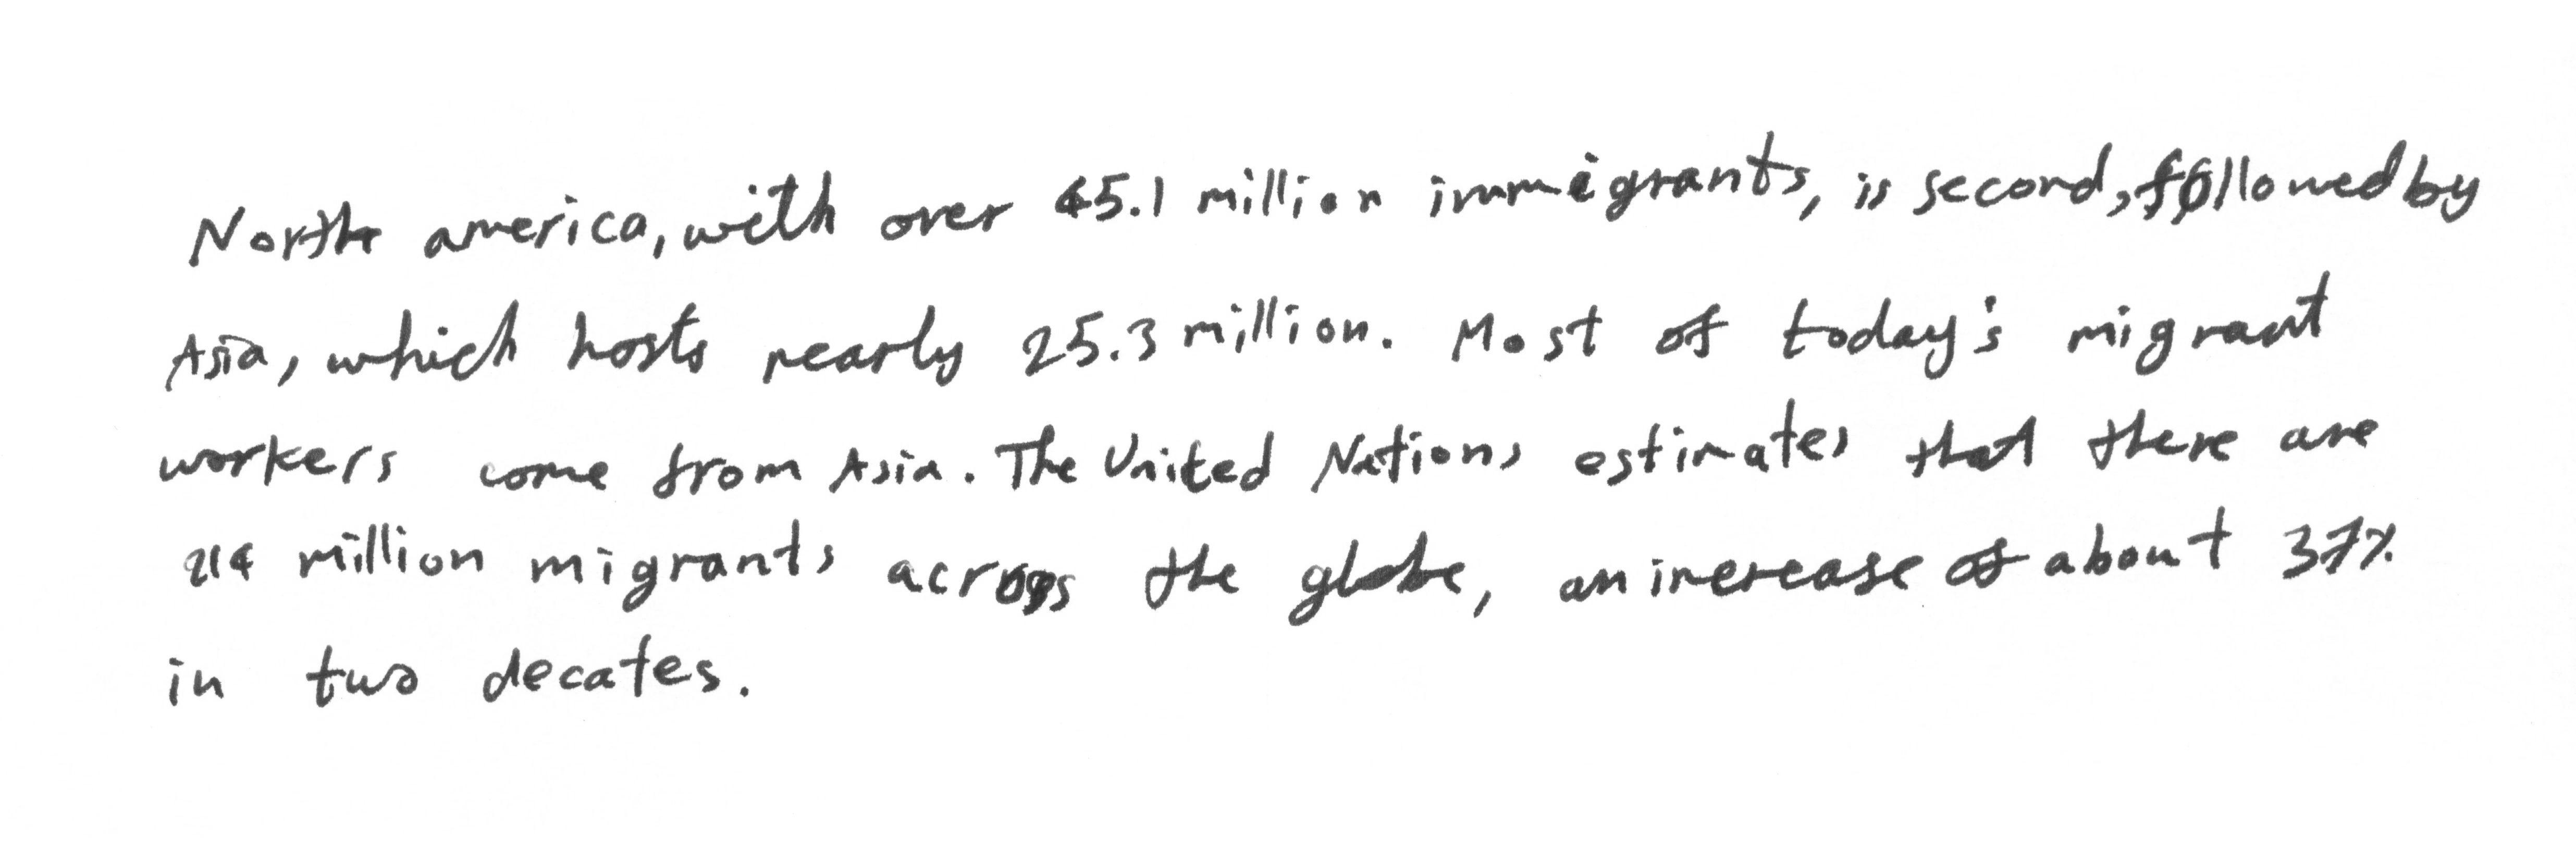 North america, with over 45.1 million immigrants, is second, followed by
Asia, which hosts nearly 25.3 million. Most of today's migrant
workers come from Asia. The United Nations estimates that there are
214 million migrants across the globe, an increase of about 37%
in two decates.